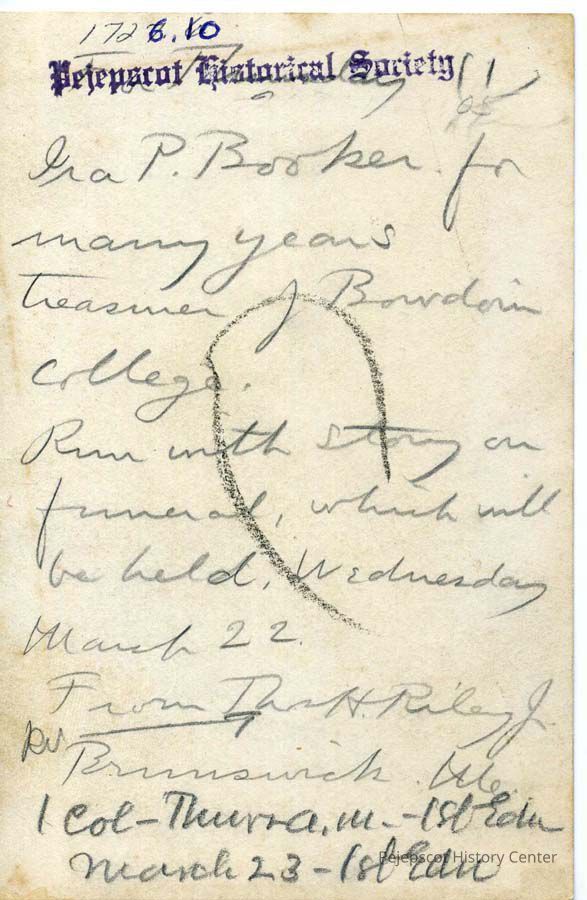 1728.10
Pejepscot Historical Society
Ira P. Booker for
many years
treasurer of Bowdoin
College.
Run with story on
funeral, which will
be held, Wednesday
March 22.
From Thos H. Riley Jr
Brunswick. Me.
1 Col - Thurs a.m. - 1st Edn
March 23 - 1st Edn
Pejepscot History Center